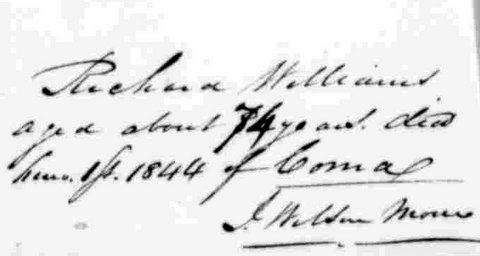 Richard Williams
aged about 74 years. died
1st. 1844 of Coma
J. Wilson Moore